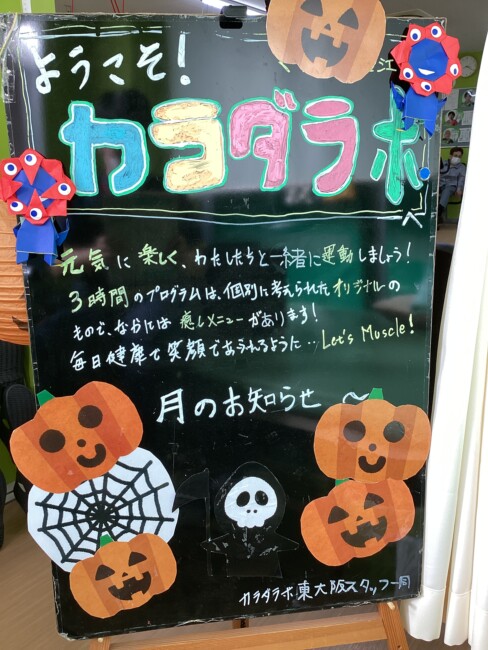 ようこそ!
カラダラボ
へ
元気に楽しく、わたしたちと一緒に運動しましょう!
3時間のプログラムは、個別に考えられたオリジナルの
もので、なかには癒しメニューがあります!
毎日健康で笑顔であられるように…Let's Muscle!
月のお知らせ ~
カラダラボ東大阪スタッフ一同